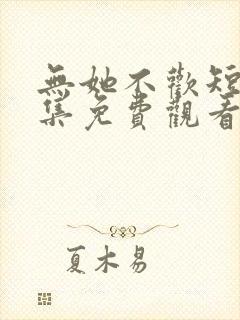 無她不歡短
集免費觀看
夏木易